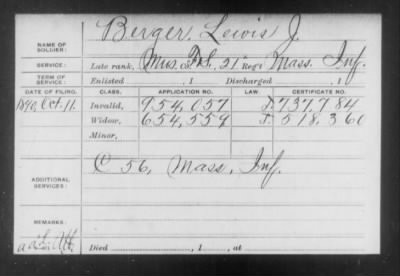 NAME OF SOLDIER: Berger, Lewis J.
SERVICE: Late rank, Mus. F.&S., 21" Reg't Mass. Inf.
TERM OF SERVICE: Enlisted , 1 Discharged , 1
DATE OF FILING. CLASS. APPLICATION NO. LAW. CERTIFICATE NO.
1890, Oct. 11. Invalid, 954,057 J. 737,784
Widow, 654,559 J. 518,360
Minor,
ADDITIONAL SERVICES: C 56, Mass, Inf.
REMARKS:
Died , 1 , at